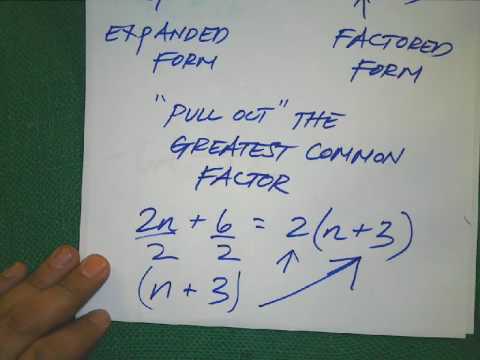 EXPANDED FORM
FACTORED FORM
"PULL OUT" THE
GREATEST COMMON
FACTOR
2n/2 + 6/2 = 2(n+3)
(n+3)